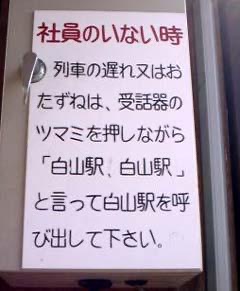 社員のいない時
列車の遅れ又はお
たずねは、受話器の
ツマミを押しながら
「白山駅、白山駅」
と言って白山駅を呼
び出して下さい。